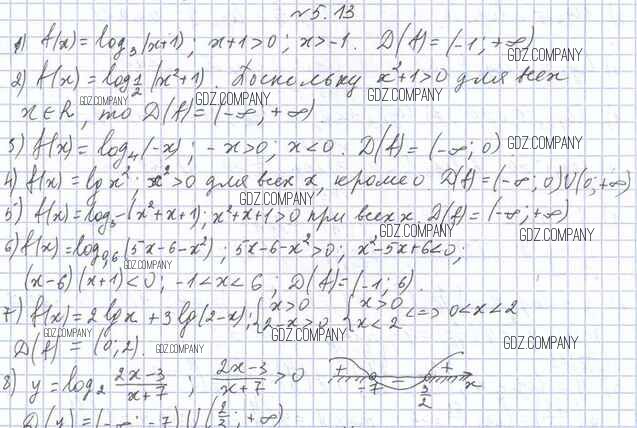 №5.13
1) f(x)=log₃(x+1); x+1>0; x>-1. D(f)=(-1;+∞)
GDZ.COMPANY
2) f(x)=log½(x²+1). Поскольку x²+1>0 для всех
GDZ.COMPANY GDZ.COMPANY GDZ.COMPANY
x∈R, то D(f)=(-∞;+∞)
3) f(x)=log₄(-x); -x>0; x<0. D(f)=(-∞;0)
GDZ.COMPANY
4) f(x)=lgx²; x²>0 для всех x, кроме 0 D(f)=(-∞;0)U(0;+∞)
GDZ.COMPANY
5) f(x)=log₃-(x²+x+1); x²+x+1>0 при всех x, D(f)=(-∞;+∞)
GDZ.COMPANY
6) f(x)=log₀,₆(5x-6-x²); 5x-6-x²>0; x²-5x+6<0;
GDZ.COMPANY
(x-6)(x+1)<0; -1<x<6; D(f)=(-1;6).
7) f(x)=2lgx+3lg(2-x); {x>0 2-x>0 {x>0 x<2 <=> 0<x<2
GDZ.COMPANY GDZ.COMPANY GDZ.COMPANY
D(f)=(0;2).
GDZ.COMPANY
8) y=log₂ (2x-3)/(x+7); (2x-3)/(x+7)>0 + -7 - 3/2 + x
D(y)=(-∞;-7)U(3/2;+∞)